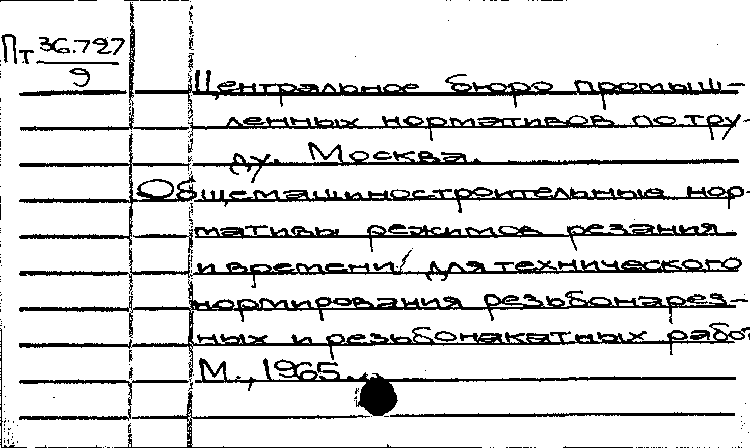 Пт 36.727
9
Центральное бюро промыш-
ленных нормативов по тру-
ду. Москва.
Общемашиностроительные нор-
мативы режимов резания
и времени для технического
нормирования резьбонарез-
ных и резьбонакатных работ
М., 1965.